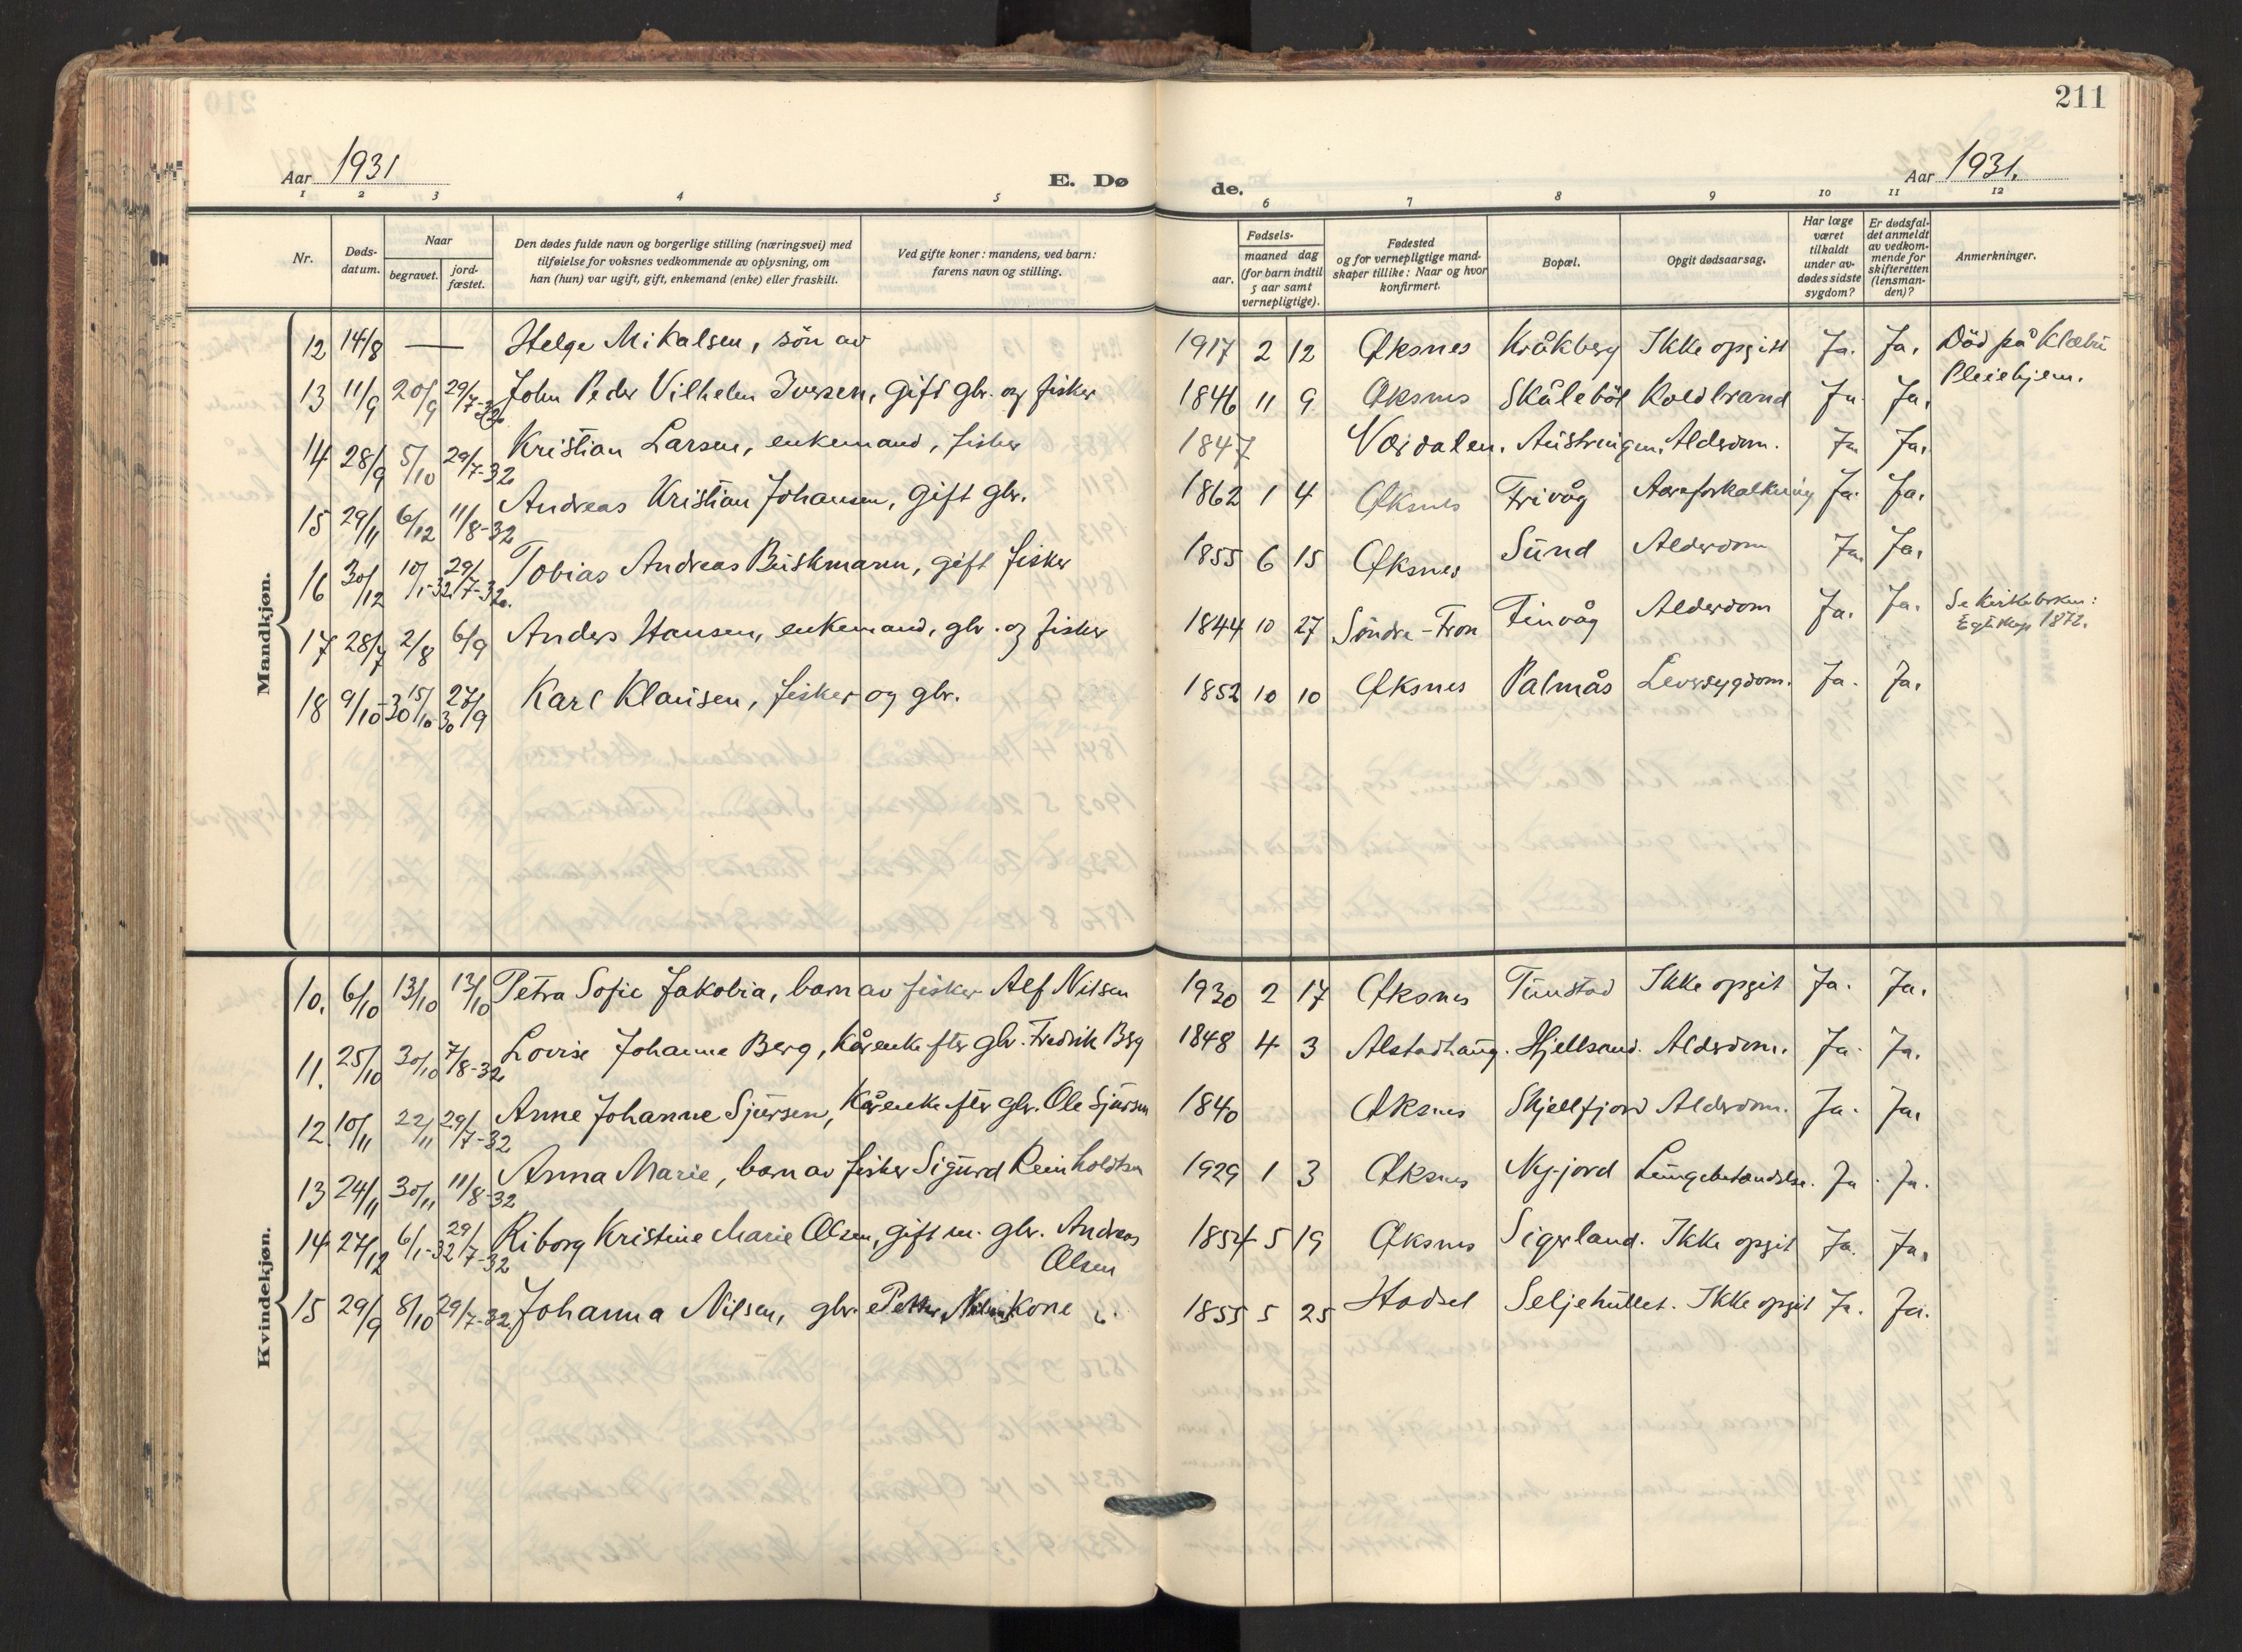 211
Aar 1931
E. Dø
de.
Aar 1931.
1 2 3 4 5 6 7 8 9 10 11 12
Nr.
Døds-
datum.
Naar
begravet.
jord-
fæstet.
Den dødes fulde navn og borgerlige stilling (næringsvei) med
tilføielse for voksnes vedkommende av oplysning, om
han (hun) var ugift, gift, enkemand (enke) eller fraskilt.
Ved gifte koner: mandens, ved barn:
farens navn og stilling.
Fødsels-
aar.
maaned dag
(for barn indtil
5 aar samt
vernepligtige).
Fødested
og for vernepligtige mand-
skaper tillike: Naar og hvor
konfirmert.
Bopæl.
Opgit dødsaarsag.
Har læge
været
tilkaldt
under av-
dødes sidste
sygdom?
Er dødsfal-
det anmeldt
av vedkom-
mende for
skifteretten
(lensman-
den)?
Anmerkninger.
Mandkjøn.
12 14/8 — Helge Mikalsen, sön av 1917 2 12 Øksnes Kråkberg Ikke opgitt Ja. Ja. Död på Klæbu
Pleiehjem.
13 11/9 20/9 29/7-32 John Peder Vilhelm Iversen, gift gbr. og fisker 1846 11 9 Øksnes Skåleböl Koldbrand Ja. Ja.
14 28/9 5/10 29/7-32 Kristian Larsen, enkemand, fisker 1847 Værdalen. Austringen. Alderdom. Ja. Ja.
15 29/11 6/12 11/8-32 Andreas Kristian Johansen, gift gbr. 1862 1 4 Øksnes Frivåg Aareforkalkning Ja. Ja.
16 30/12 10/1-32 29/7-32. Tobias Andreas Buskmann, gift fisker 1855 6 15 Øksnes Sund Alderdom Ja. Ja.
17 28/7 2/8 6/9 Anders Hansen, enkemand, gbr. og fisker 1844 10 27 Söndre-Fron Finvåg Alderdom Ja. Ja. Se kirkeboken:
1872.
18 9/10-30 15/10-30 27/9 Karl Klausen, fisker og gbr. 1852 10 10 Øksnes Palmås Leversygdom. Ja. Ja.
Kvindekjøn.
10. 6/10 13/10 13/10 Petra Sofie Jakobia, barn av fisker Alf Nilsen 1930 2 17 Øksnes Tunstad Ikke opgit Ja. Ja.
11. 25/10 30/10 7/8-32 Lovise Johanne Berg, kårenke efter gbr. Fredrik Berg 1848 4 3 Alstadhaug. Hjellsand. Alderdom. Ja. Ja.
12. 10/11 22/11 29/7-32 Anne Johanne Sjursen, kårenke efter gbr. Ole Sjursen 1840 Øksnes Skjellfjord Alderdom. Ja. Ja.
13 24/11 30/11 11/8-32 Anna Marie, barn av fisker Sigurd Reinholdtsen 1929 1 3 Øksnes Nyjord Lungebetændelse. Ja. Ja.
14 27/12 6/1-32 29/7-32 Riborg Kristine Marie Olsen, gift m. gbr. Andreas
Olsen 1854 5 19 Øksnes Sigerland. Ikke opgit Ja. Ja.
15 29/9 8/10 29/7-32. Johanna Nilsen, gbr. Petter Nilsens kone 1855 5 25 Hadsel Seljehullet. Ikke opgit Ja. Ja.